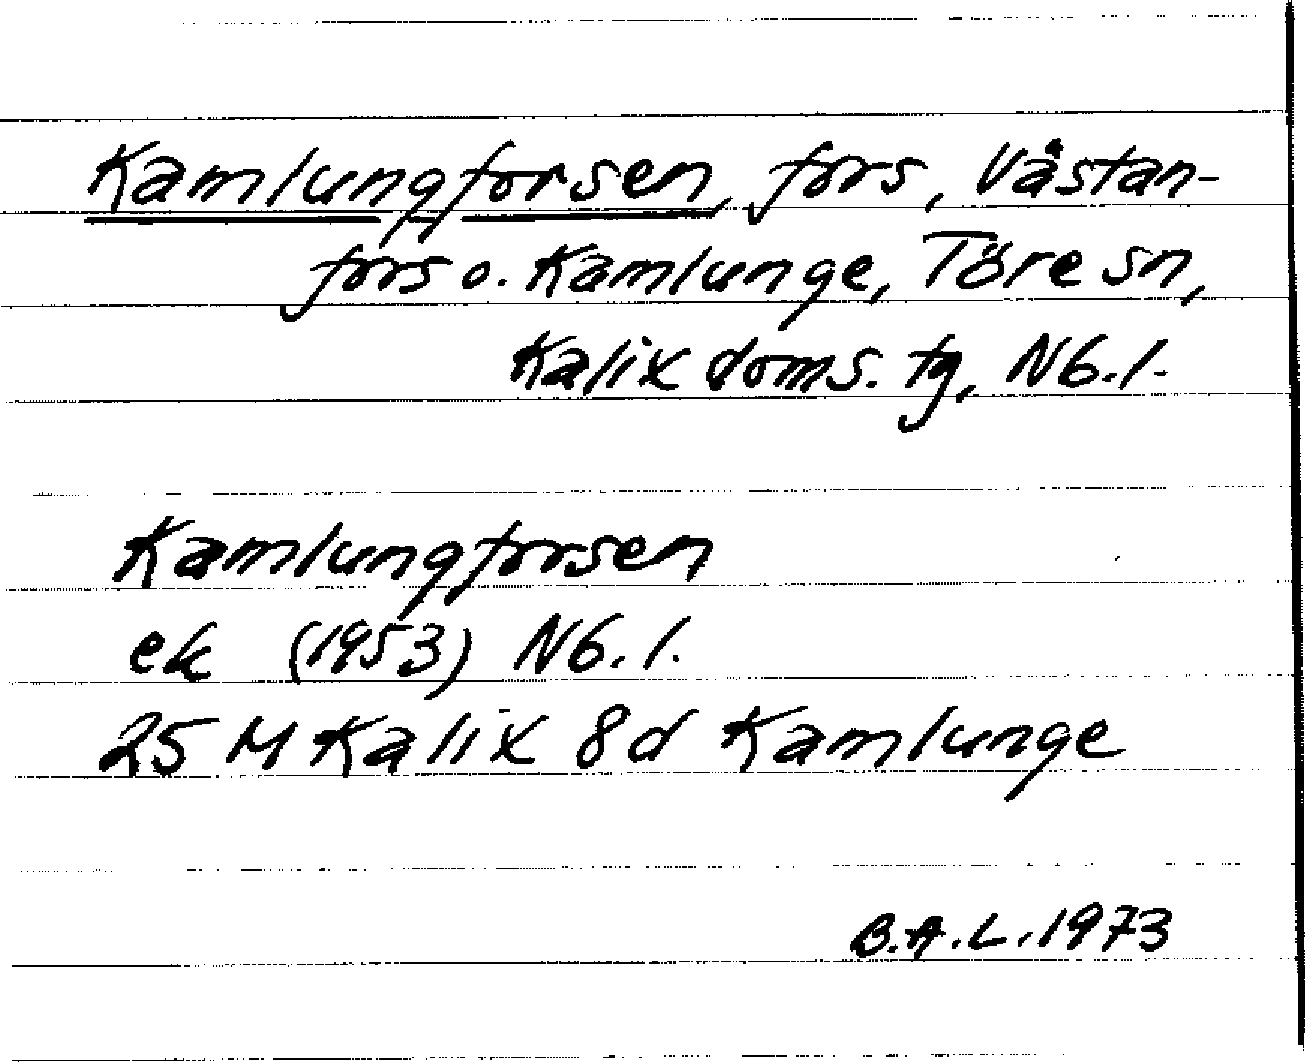 Kamlungforsen, fors, Västan-
fors o. Kamlunge, Töre sn,
Kalix doms. tg, Nb. l.
Kamlungforsen
ek (1953) Nb. l.
25 M Kalix 8d Kamlunge
B.A.L. 1973